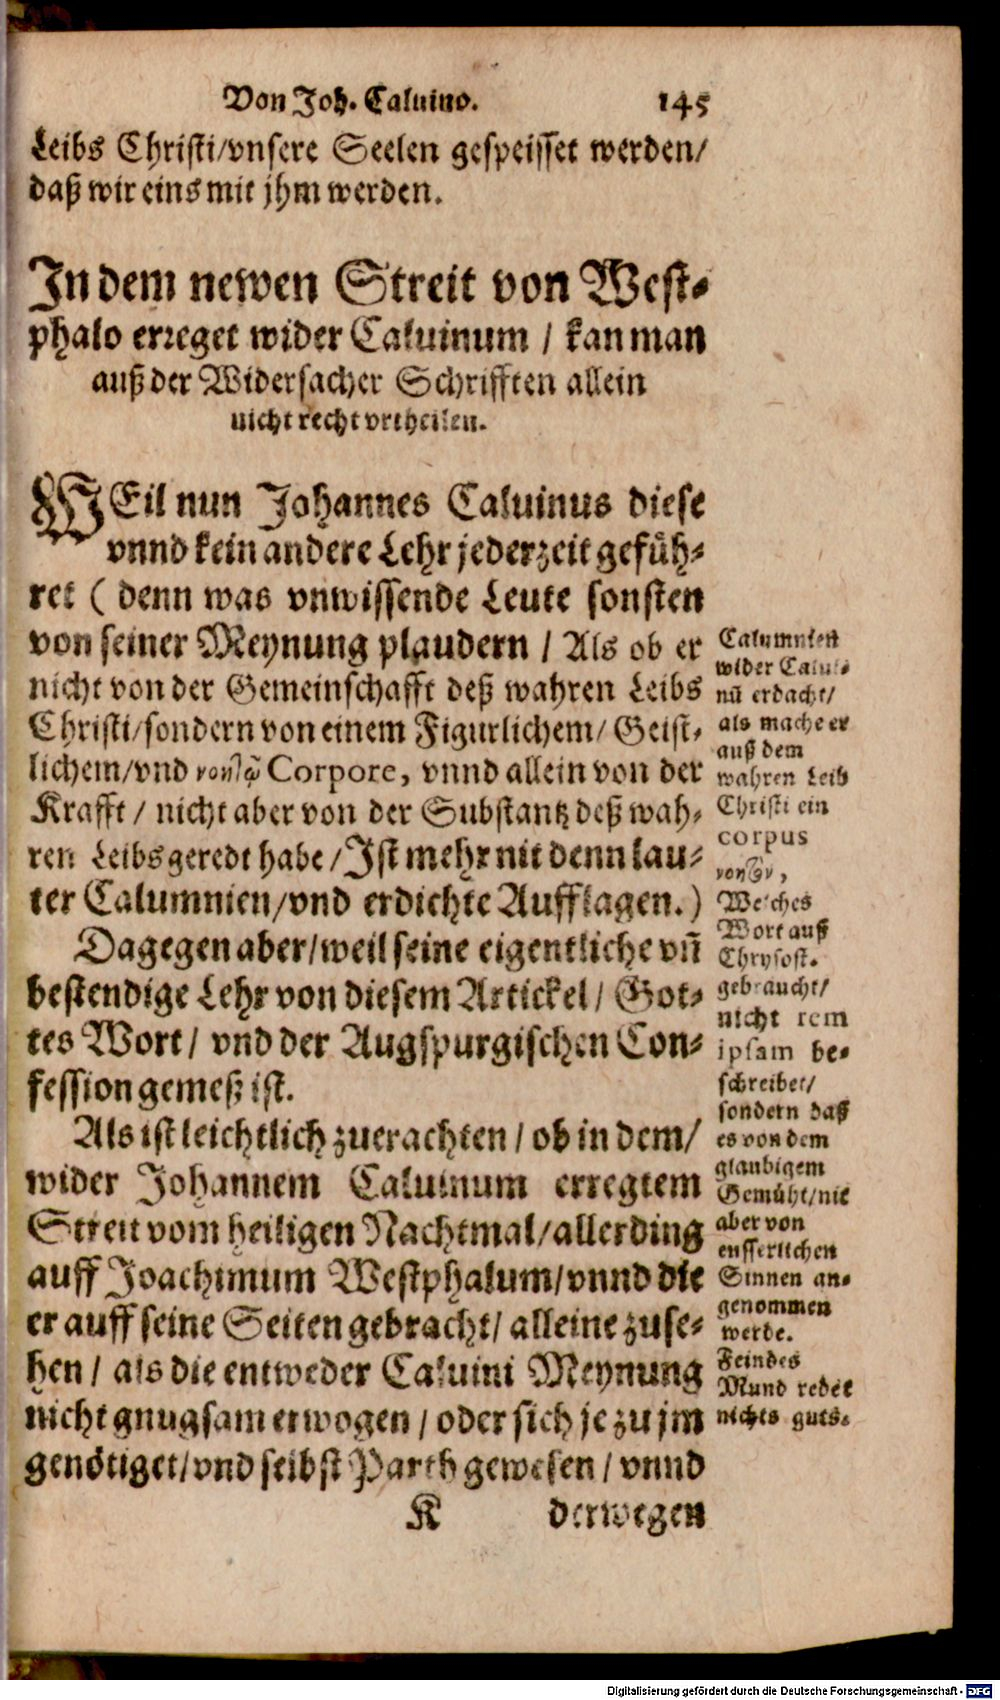 Von Joh. Caluino. 145
Leibs Christi/vnsere Seelen gespeisset werden/
daß wir eins mit jhm werden.
In dem newen Streit von West-
phalo erreget wider Caluinum / kan man
auß der Widersacher Schrifften allein
nicht recht vrtheilen.
WEil nun Johannes Caluinus diese
vnnd kein andere Lehr jederzeit gefüh-
ret ( denn was vnwissende Leute sonsten
von seiner Meynung plaudern / Als ob er
nicht von der Gemeinschafft deß wahren Leibs
Christi/sondern von einem Figurlichem/ Geist-
lichem/vnd Corpore, vnnd allein von der
Krafft / nicht aber von der Substantz deß wah-
ren Leibs geredt habe / Ist mehr nit denn lau-
ter Calumnien/vnd erdichte Aufflagen.)
Dagegen aber/weil seine eigentliche vn̄
bestendige Lehr von diesem Artickel/ Got-
tes Wort/ vnd der Augspurgischen Con-
fession gemeß ist.
Als ist leichtlich zuerachten / ob in dem/
wider Johannem Caluinum erregtem
Streit vom heiligen Nachtmal/allerding
auff Joachimum Westphalum/vnnd die
er auff seine Seiten gebracht/ alleine zuse-
hen / als die entweder Caluini Meynung
nicht gnugsam erwogen / oder sich je zu jm
genötiget/vnd selbst Parth gewesen / vnnd
K derwegen
Calumnien
wider Calui-
nū erdacht/
als mache er
auß dem
wahren Leib
Christi ein
corpus
Welches
Wort auß
Chrysost.
gebraucht/
nicht rem
ipsam be-
schreibet/
sondern daß
es von dem
glaubigem
Gemüht/nit
aber von
eusserlichen
Sinnen an-
genommen
werde.
Feindes
Mund redet
nichts guts.
Digitalisierung gefördert durch die Deutsche Forschungsgemeinschaft - DFG